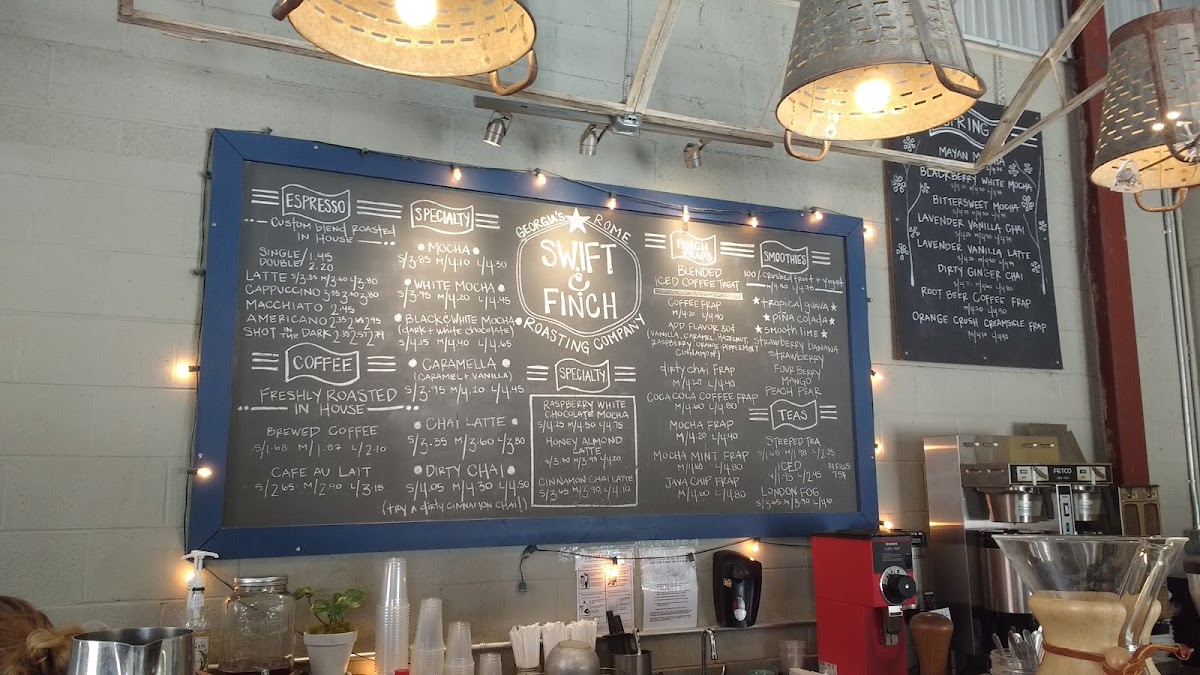 ESPRESSO
Custom blend roasted
in House
SINGLE / 1.45
DOUBLE / 2.20
LATTE S/3.35 M/3.60 L/3.80
CAPPUCCINO 3.35 3.60 3.80
MACCHIATO 2.45
AMERICANO 2.35 2.65 2.95
SHOT IN THE DARK 2.35 2.57 2.79
COFFEE
FRESHLY ROASTED
IN HOUSE
BREWED COFFEE
S/1.68 M/1.87 L/2.10
CAFE AU LAIT
S/2.65 M/2.90 L/3.15
SPECIALTY
MOCHA
S/3.85 M/4.10 L/4.30
WHITE MOCHA
S/3.95 M/4.20 L/4.45
BLACK & WHITE MOCHA
(dark + white chocolate)
S/4.15 M/4.40 L/4.65
CARAMELLA
(CARAMEL + VANILLA)
S/3.95 M/4.20 L/4.45
CHAI LATTE
S/3.35 M/3.60 L/3.80
DIRTY CHAI
S/4.05 M/4.30 L/4.50
(try a dirty cinnamon chai!)
GEORGIA'S ROME
SWIFT
&
FINCH
ROASTING COMPANY
SPECIALTY
RASPBERRY WHITE
CHOCOLATE MOCHA
S/4.25 M/4.50 L/4.75
HONEY ALMOND
LATTE
S/3.70 M/3.95 L/4.20
CINNAMON CHAI LATTE
S/3.65 M/3.90 L/4.10
FINCH
BLENDED
ICED COFFEE TREAT
COFFEE FRAP
M/4.20 L/4.40
ADD FLAVOR 30¢
(VANILLA, CARAMEL, HAZELNUT,
RASPBERRY, ORANGE, PEPPERMINT,
CINNAMON)
dirty chai FRAP
M/4.20 L/4.40
COCA COLA COFFEE FRAP
M/4.60 L/4.80
MOCHA FRAP
M/4.20 L/4.40
MOCHA MINT FRAP
M/4.60 L/4.80
JAVA CHIP FRAP
M/4.60 L/4.80
SMOOTHIES
100% crushed fruit + yogurt
tropical guava
piña colada
smooth lime
strawberry banana
strawberry
FOUR BERRY
MANGO
PEACH PEAR
TEAS
STEEPED TEA
S/1.68 M/1.98 L/2.25
ICED
M/1.95 L/2.45 REFILLS 75¢
LONDON FOG
S/3.65 M/3.90 L/4.10
SPRING
MAYAN MOCHA
BLACKBERRY WHITE MOCHA
BITTERSWEET MOCHA
LAVENDER VANILLA CHAI
LAVENDER VANILLA LATTE
DIRTY GINGER CHAI
ROOT BEER COFFEE FRAP
ORANGE CRUSH CREAMSICLE FRAP
FETCO